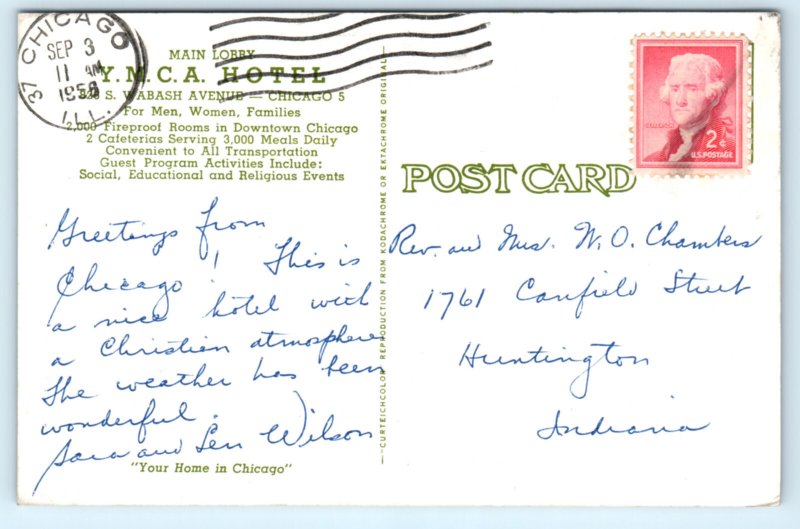 37 CHICAGO
SEP 3
11 AM
1958
ILL.
MAIN LOBBY
Y.M.C.A. HOTEL
826 S. WABASH AVENUE — CHICAGO 5
For Men, Women, Families
2,000 Fireproof Rooms in Downtown Chicago
2 Cafeterias Serving 3,000 Meals Daily
Convenient to All Transportation
Guest Program Activities Include:
Social, Educational and Religious Events
Greetings from
Chicago! This is
a nice hotel with
a Christian atmosphere
The weather has been
wonderful.
Sara and Len Wilson
"Your Home in Chicago"
—CURTEICHCOLOR REPRODUCTION FROM KODACHROME OR EKTACHROME ORIGINAL—
JEFFERSON
2¢
U.S. POSTAGE
POST CARD
Rev. and Mrs. W. O. Chambers
1761 Canfield Street
Huntington
Indiana